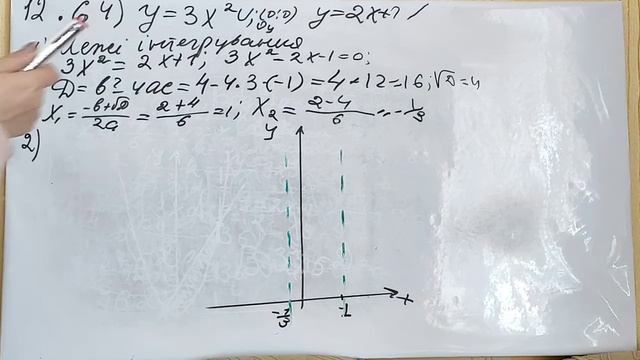 12.6 4) y = 3x² U; (0;0) y = 2x+1 /
Oy
1) Межі інтегрування
3x² = 2x+1; 3x² - 2x - 1 = 0;
D = b² - 4ac = 4 - 4·3·(-1) = 4 + 12 = 16; √D = 4
x₁ = (-b+√D)/2a = (2+4)/6 = 1; x₂ = (2-4)/6 = -1/3
2)
y
-1/3
1
x